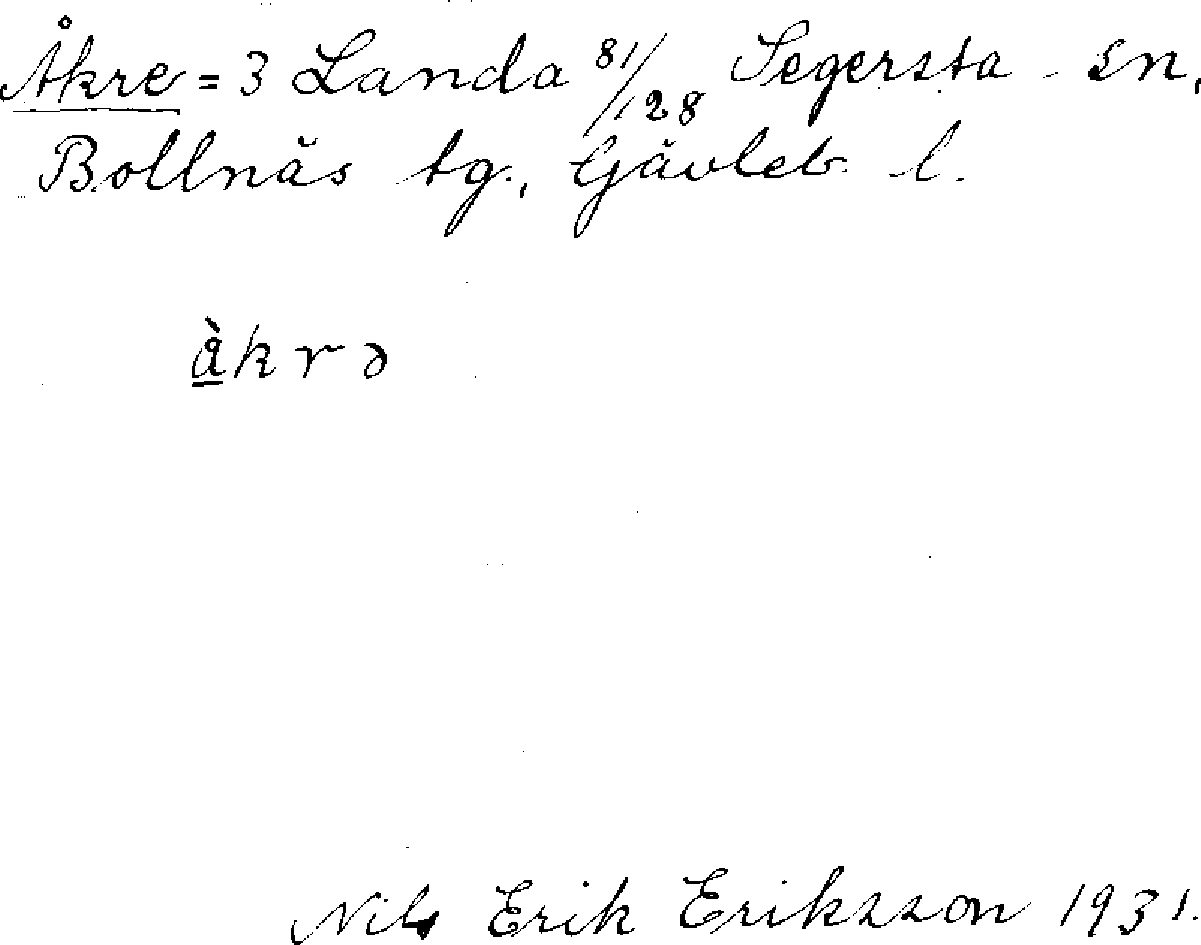 Åkre = 3 Landa 81/128 Segersta sn,
Bollnäs tg., Gävleb. l.
åkrə
Nils Erik Eriksson 1931.